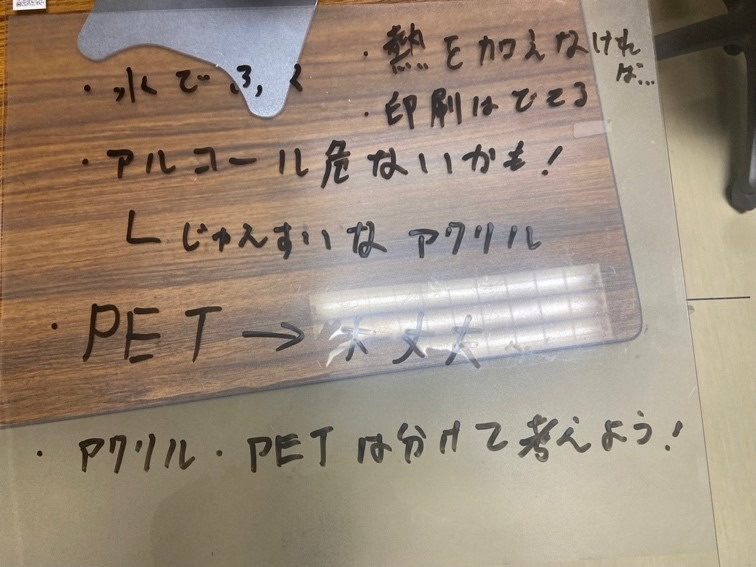 ・水でふく
・熱を加えなければ...
・印刷はできる
・アルコール危ないかも!
└じゅんすいな アクリル
・PET→大丈夫
・アクリル・PETは分けて考えよう!